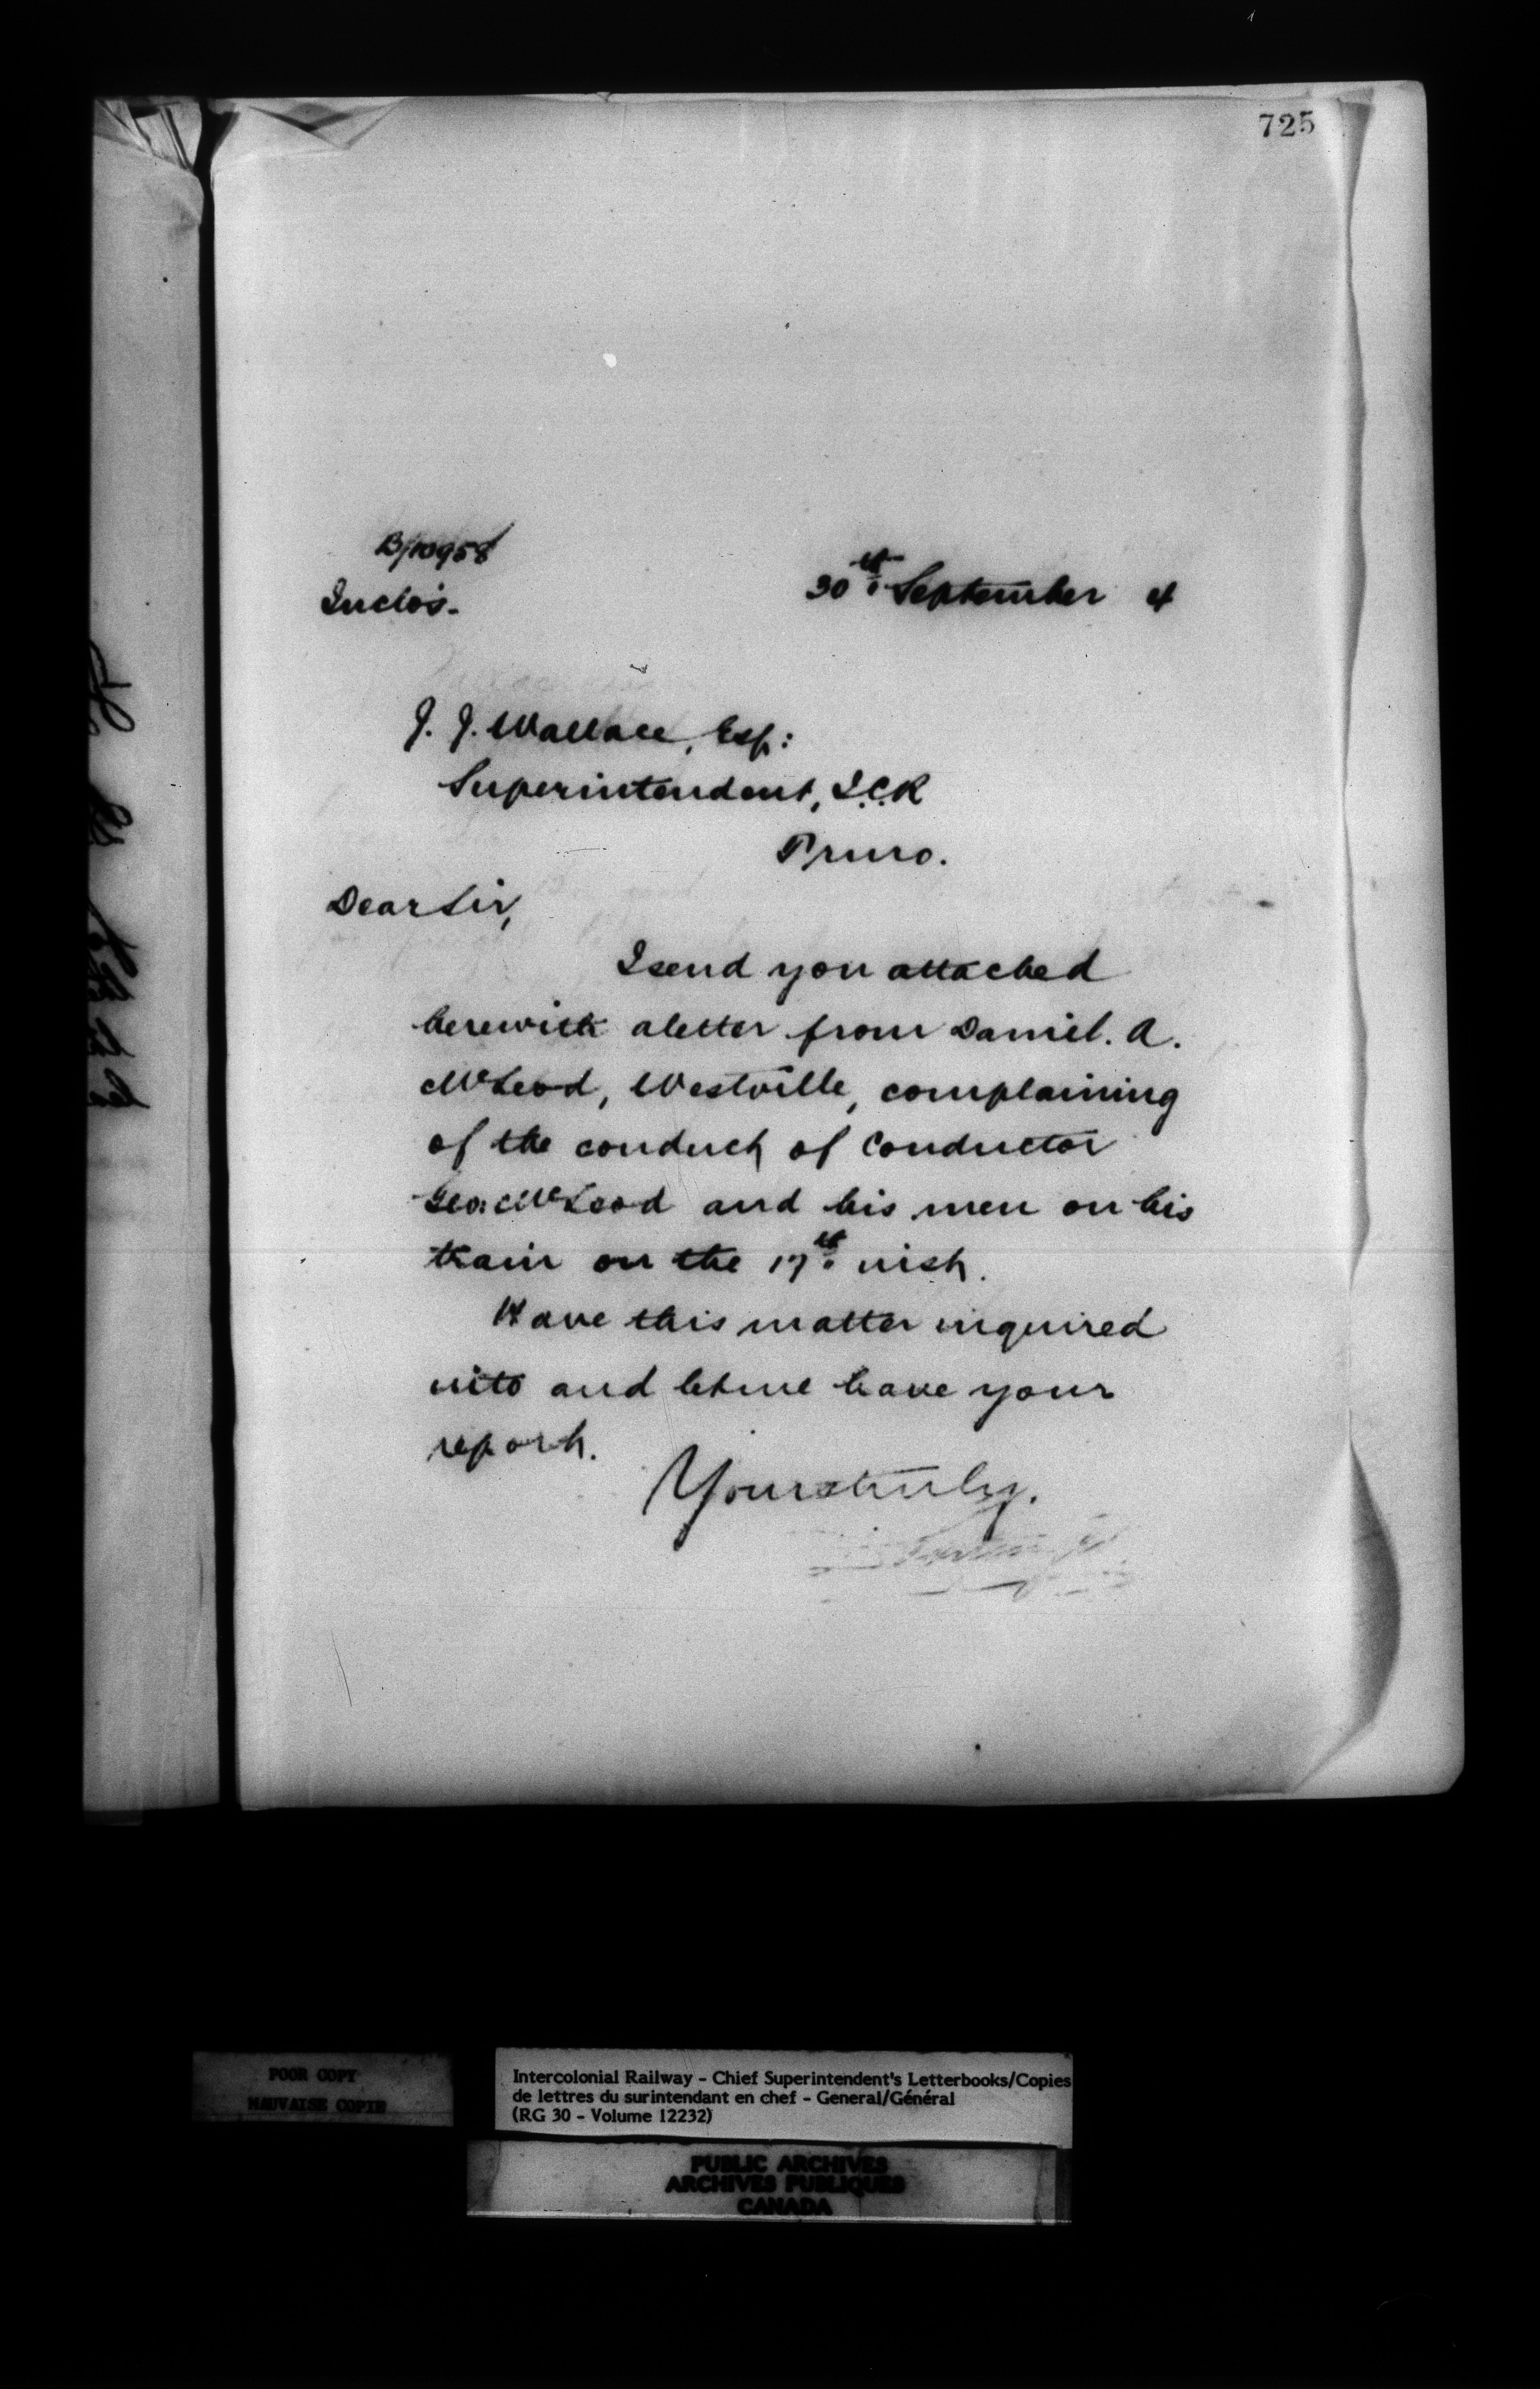 725
B/10958
Inclos.
30th September 4
J. J. Wallace, Esq:
Superintendent, I.C.R
Truro.
Dear Sir,
I send you attached
herewith a letter from Daniel. A.
McLeod, Westville, complaining
of the conduct of Conductor
Geo: McLeod and his men on his
train on the 17th inst.
Have this matter inquired
into and let me have your
report.
Yours truly.
POOR COPY
MAUVAISE COPIE
Intercolonial Railway - Chief Superintendent's Letterbooks/Copies
de lettres du surintendant en chef - General/Général
(RG 30 - Volume 12232)
PUBLIC ARCHIVES
ARCHIVES PUBLIQUES
CANADA